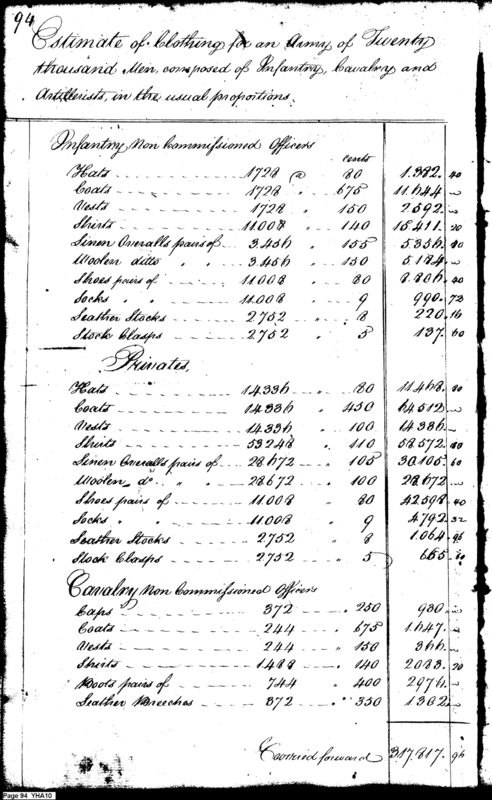 94
Estimate of Clothing for an Army of Twenty
thousand Men, composed of Infantry, Cavalry and
Artillerists, in the usual proportions.
Infantry Non Commissioned Officers
cents
Hats 1728 @ 80 1.382.40
Coats 1728 " 675 11.644 "
Vests 1728 " 150 2592 "
Shirts 11.008 " 140 15.411.20
Linen Overalls pairs of 3.456 " 155 5.356.80
Woolen ditto " " 3.456 " 150 5.184 "
Shoes pairs of 11.008 " 80 8.806.40
Socks " " 11.008 " 9 990.72
Leather Stocks 2752 " 8 220.16
Stock Clasps 2752 " 5 137.60
Privates,
Hats 14.336 " 80 11.468.80
Coats 14.336 " 450 64.512 "
Vests 14.336 " 100 14.336 "
Shirts 53248 " 110 58.572.80
Linen Overalls pairs of 28,672 " 105 30.105.60
Woolen do " " 28.672 " 100 28.672 "
Shoes pairs of 11.008 " 80 42598.40
Socks " " 11.008 " 9 4792.32
Leather Stocks 2752 " 8 1.064.96
Stock Clasps 2752 " 5 665.60
Cavalry Non Commissioned Officers
Caps 372 " 250 930 "
Coats 244 " 675 1.647 "
Vests 244 " 150 366 "
Shirts 1488 " 140 2083.20
Boots pairs of 744 " 400 2976 "
Leather Breeches 372 " 350 1302 "
Carried forward 317.817.96
Page 94 YHA10